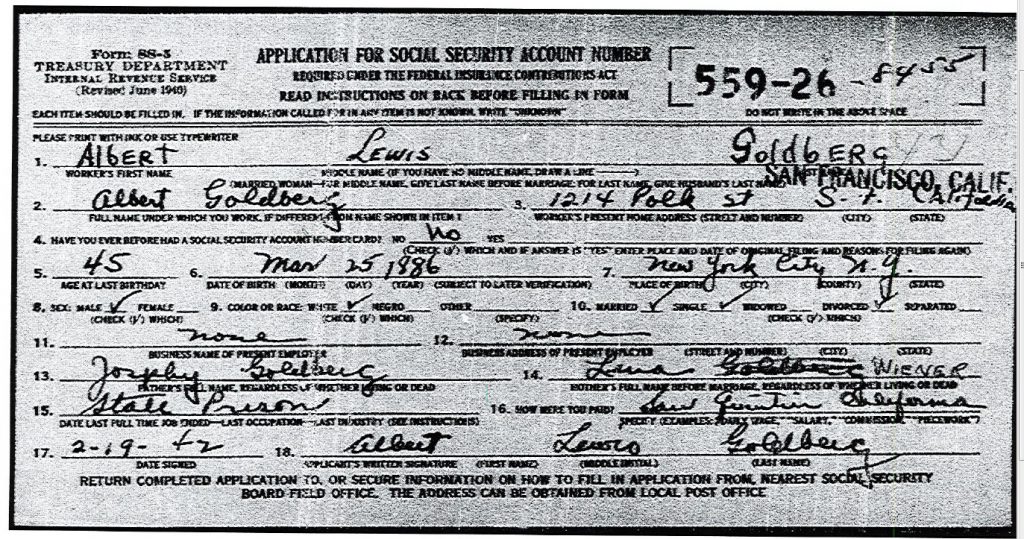 Form SS-5
TREASURY DEPARTMENT
INTERNAL REVENUE SERVICE
(Revised June 1940)
APPLICATION FOR SOCIAL SECURITY ACCOUNT NUMBER
REQUIRED UNDER THE FEDERAL INSURANCE CONTRIBUTIONS ACT
READ INSTRUCTIONS ON BACK BEFORE FILLING IN FORM
559-26-8455
DO NOT WRITE IN THE ABOVE SPACE
EACH ITEM SHOULD BE FILLED IN. IF THE INFORMATION CALLED FOR IN ANY ITEM IS NOT KNOWN, WRITE "UNKNOWN"
PLEASE PRINT WITH INK OR USE TYPEWRITER
1. Albert Lewis Goldberg
WORKER'S FIRST NAME MIDDLE NAME (IF YOU HAVE NO MIDDLE NAME, DRAW A LINE ———)
SAN FRANCISCO, CALIF.
(MARRIED WOMAN—FOR MIDDLE NAME, GIVE LAST NAME BEFORE MARRIAGE. FOR LAST NAME, GIVE HUSBAND'S LAST NAME)
2. Albert Goldberg 3. 1214 Polk st S.F.
FULL NAME UNDER WHICH YOU WORK, IF DIFFERENT FROM NAME SHOWN IN ITEM 1 WORKER'S PRESENT HOME ADDRESS (STREET AND NUMBER) (CITY) (STATE)
4. HAVE YOU EVER BEFORE HAD A SOCIAL SECURITY ACCOUNT NUMBER CARD? NO No YES
(CHECK (√) WHICH AND IF ANSWER IS "YES" ENTER PLACE AND DATE OF ORIGINAL FILING AND REASONS FOR FILING AGAIN)
5. 45 6. Mar 25 1886 7. New York City N.Y.
AGE AT LAST BIRTHDAY DATE OF BIRTH (MONTH) (DAY) (YEAR) (SUBJECT TO LATER VERIFICATION) PLACE OF BIRTH (CITY) (COUNTY) (STATE)
8. SEX: MALE ✓ FEMALE 9. COLOR OR RACE: WHITE ✓ NEGRO OTHER 10. MARRIED ✓ SINGLE ✓ WIDOWED DIVORCED ✓ SEPARATED
(CHECK (√) WHICH) (CHECK (√) WHICH) (SPECIFY) (CHECK (√) WHICH)
11. none 12. none
BUSINESS NAME OF PRESENT EMPLOYER BUSINESS ADDRESS OF PRESENT EMPLOYER (STREET AND NUMBER) (CITY) (STATE)
13. Goldberg 14. Lena Goldberg WIENER
FATHER'S FULL NAME, REGARDLESS OF WHETHER LIVING OR DEAD MOTHER'S FULL NAME BEFORE MARRIAGE, REGARDLESS OF WHETHER LIVING OR DEAD
15. State Prison 16. HOW WERE YOU PAID? San Quintin California
DATE LAST FULL TIME JOB ENDED—LAST OCCUPATION—LAST INDUSTRY (SEE INSTRUCTIONS) SPECIFY (EXAMPLES: "DAILY WAGE," "SALARY," "COMMISSION," "PIECEWORK")
17. 2-19-42 18. Albert Lewis Goldberg
DATE SIGNED APPLICANT'S WRITTEN SIGNATURE (FIRST NAME) (MIDDLE INITIAL) (LAST NAME)
RETURN COMPLETED APPLICATION TO, OR SECURE INFORMATION ON HOW TO FILL IN APPLICATION FROM, NEAREST SOCIAL SECURITY
BOARD FIELD OFFICE. THE ADDRESS CAN BE OBTAINED FROM LOCAL POST OFFICE